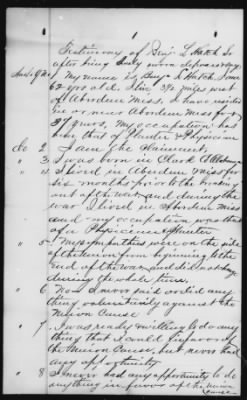 Testimony of Benj L Hatch Sr
after being duly sworn deposes & says
Ans to Q No 1 My name is Benj L Hatch I am
62 yrs old. I live 3½ miles west
of Aberdeen Miss, I have resided
in or near Aberdeen Miss for
27 years, My occupation has
been that of Planter & Physician
do 2 I am the Claimant,
" 3 I was born in Clark Co Alabama
" 4 I lived in Aberdeen Miss for
six months prior to the breaking
out of the war and during the
war I lived in Aberdeen Miss
and my occupation was that
of a Physician & Planter
" 5 My sympathies were on the side
of the Union from beginning to the
end of the war, and did not change
during the whole time.
" 6 No I never said or did any
thing voluntarily against the
Union Cause
" 7 I was ready & willing to do any
thing that I could in favor of
the Union Cause, but never had
any opportunity
" 8 I never had any opportunity to do
anything in favor of the Union
Cause